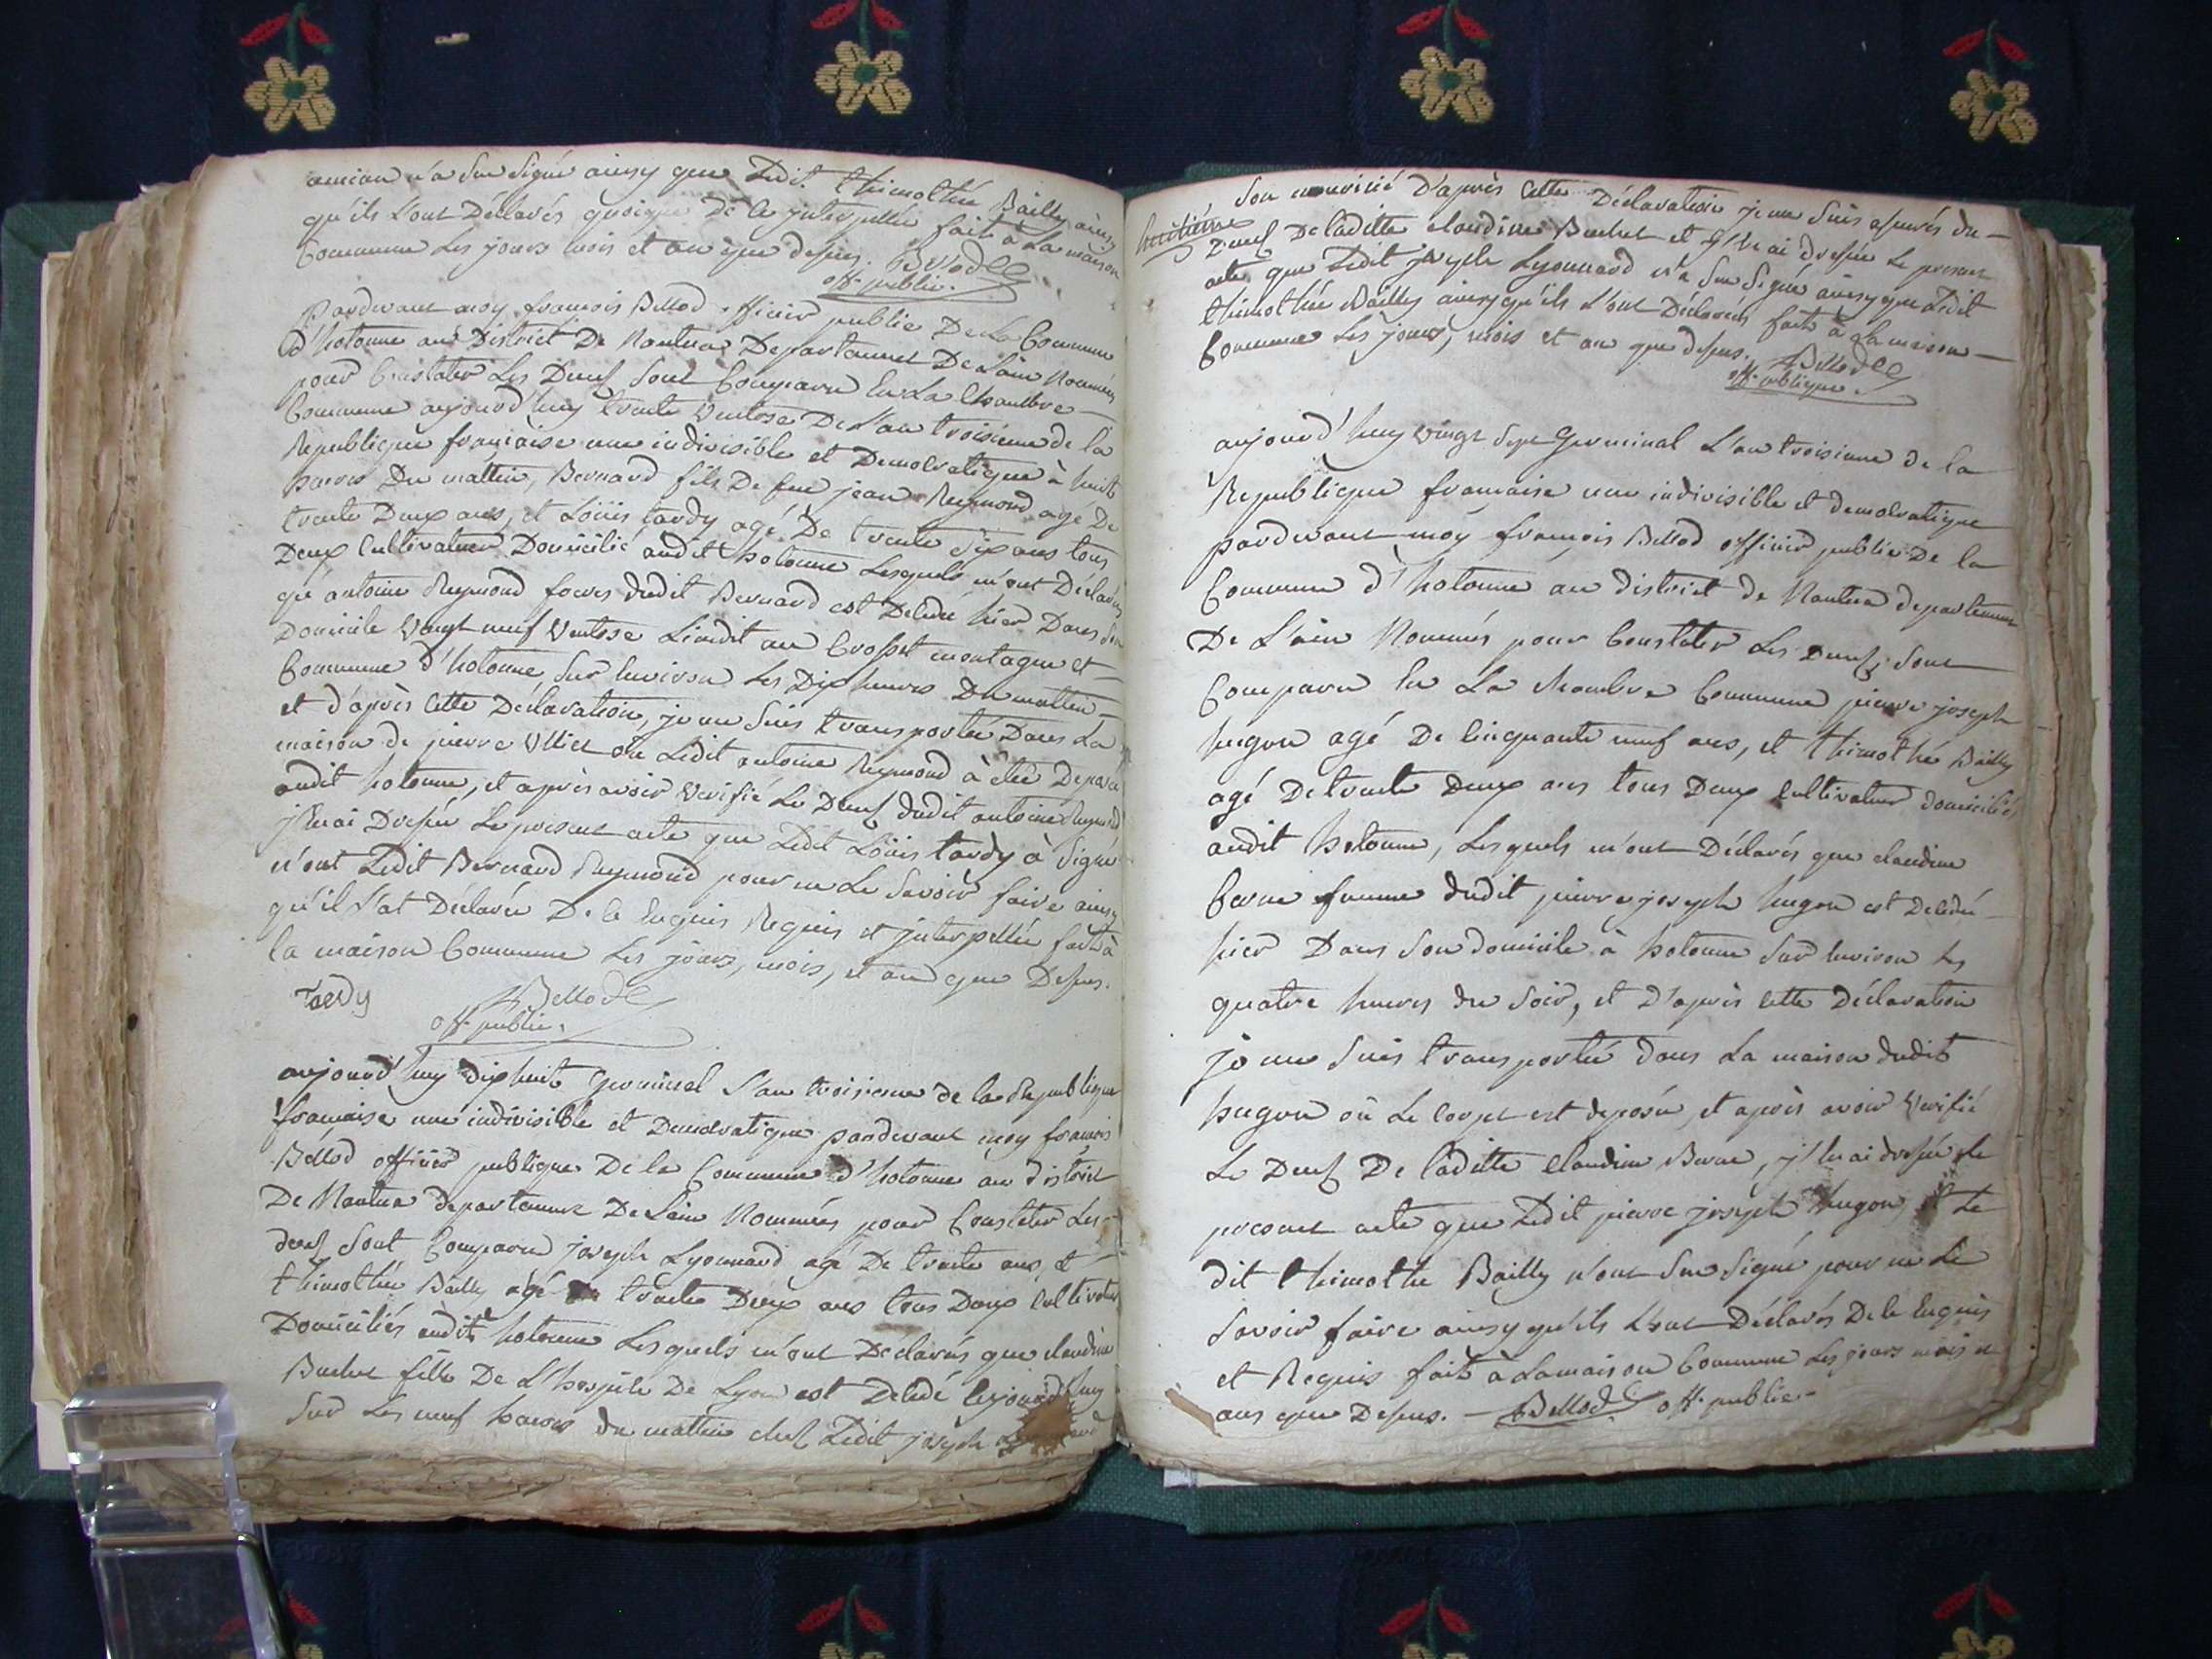 amian n'a Sue Signé ainsy que Ledit thimothée Bailly ainsy
qu'ils L'ont Déclarés quoique De le jnterpellée fait à La maison
Commune Les jours mois et an que desus. Bellod
off. public.
Pardevant moy françois Bellod officier public De La Commune
d'hotonne au District De Nantua Departement De Lain Nommés
pour Constater Les Deces Sont Comparu En La Chambre
Commune aujourd'huy trente Ventose De L'an troisieme de la
Republique française une indivisible et Democratique à huit
heures Du mattin, Bernard fils De feu jean Reymond age De
trente Deux ans, et Loüis tardy agé De trente Six ans tous
Deux Cultivateur Domicilié audit hotonne Lesquels m'ont Déclarés
que antoine Reymond freres dudit Bernard est Decedé hier Dans Son
Domicile Vingt neuf Ventose Lieudit au Crosset montagne et
Commune d'hotonne Sur Environ Les Dix heures Du mattin
et d'après Cette Déclaration, je me Suis transportée Dans La
maison de pierre Ulliet où Ledit antoine Reymond à été Deposé
audit hotonne, et après avoir Verifié Le Deces dudit antoine Reymond
j'En ai Dressée Le present acte que Ledit Loüis tardy à Signé
n'ont Ledit Bernard Reymond pour ne Le Savoir faire ainsy
qu'il L'at Déclarée De le Enquis Requis et jnterpellée fait à
la maison Commune Les jours, mois, et an que Desus.
Tardy Bellod
off. public.
aujourd'huy dix huit Germinal L'an troisieme de la Republique
française une indivisible et Democratique pardevant moy françois
Bellod officier publique De la Commune d'hotonne au district
De Nantua departement De Lain Nommés pour Constater Les
deces Sont Comparu joseph Lyonnard agé De trente ans, et
thimothée Bailly agé De trente Deux ans tous Deux Cultivateur
Domiciliés audit hotonne Lesquels m'ont Déclarés que claudine
Buchet fille De L'hospite De Lyon est Decedé Cejourd'huy
Sur Les neuf heures du mattin chez Ledit joseph
Son nouricié D'après Cette Déclaration je me Suis assurés du
Deces De laditte claudine Buchet et j'En ai dressée Le present
acte que Ledit joseph Lyonnard n'a Sue Signé ainsy que Ledit
thimothée Bailly ainsy qu'ils L'ont Déclarés fait à La maison
Commune Les jours, mois et an que desus. Bellod
off. publique.
aujourd'huy vingt Sept Germinal L'an troisieme de la
Republique française une indivisible et democratique
pardevant moy françois Bellod officier public De la
Commune d'hotonne au district de Nantua departement
De L'ain Nommés pour Constater Les Deces, Sont
Comparu En La Chambre Commune pierre joseph
hugon agé De Cinquante neuf ans, et thimothé Bailly
agé De trente Deux ans tous Deux Cultivateur domicilié,
audit hotonne, Lesquels m'ont Déclarés que claudine
Berne femme dudit pierre joseph hugon est Decedé
hier Dans Son domicile à hotonne Sur Environ Les
quatre heures du Soir, et D'après Cette Déclaration
je me Suis transportée dans La maison dudit
hugon où Le Corps est deposée, et après avoir Verifié
Le Deces De laditte Claudine Berne, j'En ai dressée le
present acte que Ledit pierre joseph hugon et Le
dit thimothée Bailly n'ont Sue Signé pour ne Le
Savoir faire ainsy qu'ils L'ont Déclarés De le Enquis
et Requis fait à La maison Commune Les jours mois et
ans que Desus. Bellod off. public